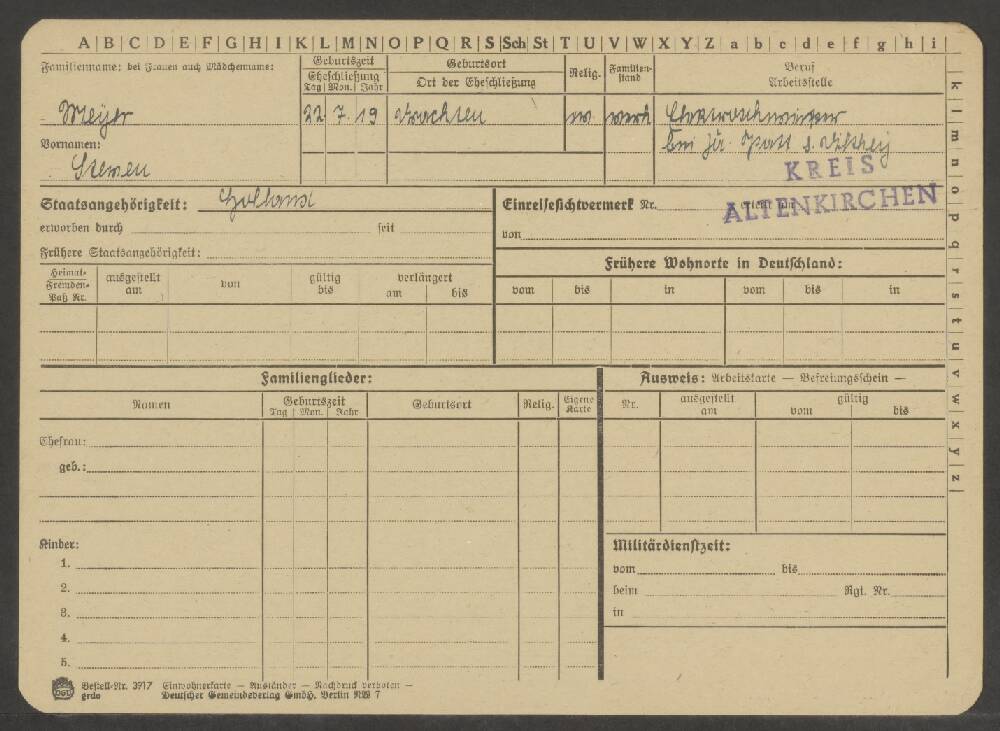 A B C D E F G H I K L M N O P Q R S Sch St T U V W X Y Z a b c d e f g h i
k l m n o p q r s t u v w x y z
Familienname: bei Frauen auch Mädchenname:
Geburtszeit
Eheschließung
Tag Mon. Jahr
Geburtsort
Ort der Eheschließung
Relig.
Familien-
stand
Beruf
Arbeitsstelle
Meijer 22 7. 19 Drachten verh
Vornamen:
bei Fa.
KREIS
ALTENKIRCHEN
Staatsangehörigkeit: Holland
erworben durch seit
Frühere Staatsangehörigkeit:
Einreisesichtvermerk Nr. erteilt am
von
Heimat-
Fremden-
Paß Nr.
ausgestellt
am
von
gültig
bis
verlängert
am bis
Frühere Wohnorte in Deutschland:
vom bis in vom bis in
Familienglieder:
Namen
Geburtszeit
Tag Mon. Jahr
Geburtsort
Relig.
Eigene
Karte
Ehefrau:
geb.:
Kinder:
1.
2.
3.
4.
5.
Ausweis: Arbeitskarte — Befreiungsschein —
Nr.
ausgestellt
am
gültig
vom bis
Militärdienstzeit:
vom bis
beim Rgt. Nr.
in
Bestell-Nr. 3917 Einwohnerkarte — Ausländer — Nachdruck verboten —
Deutscher Gemeindeverlag GmbH. Berlin NW 7